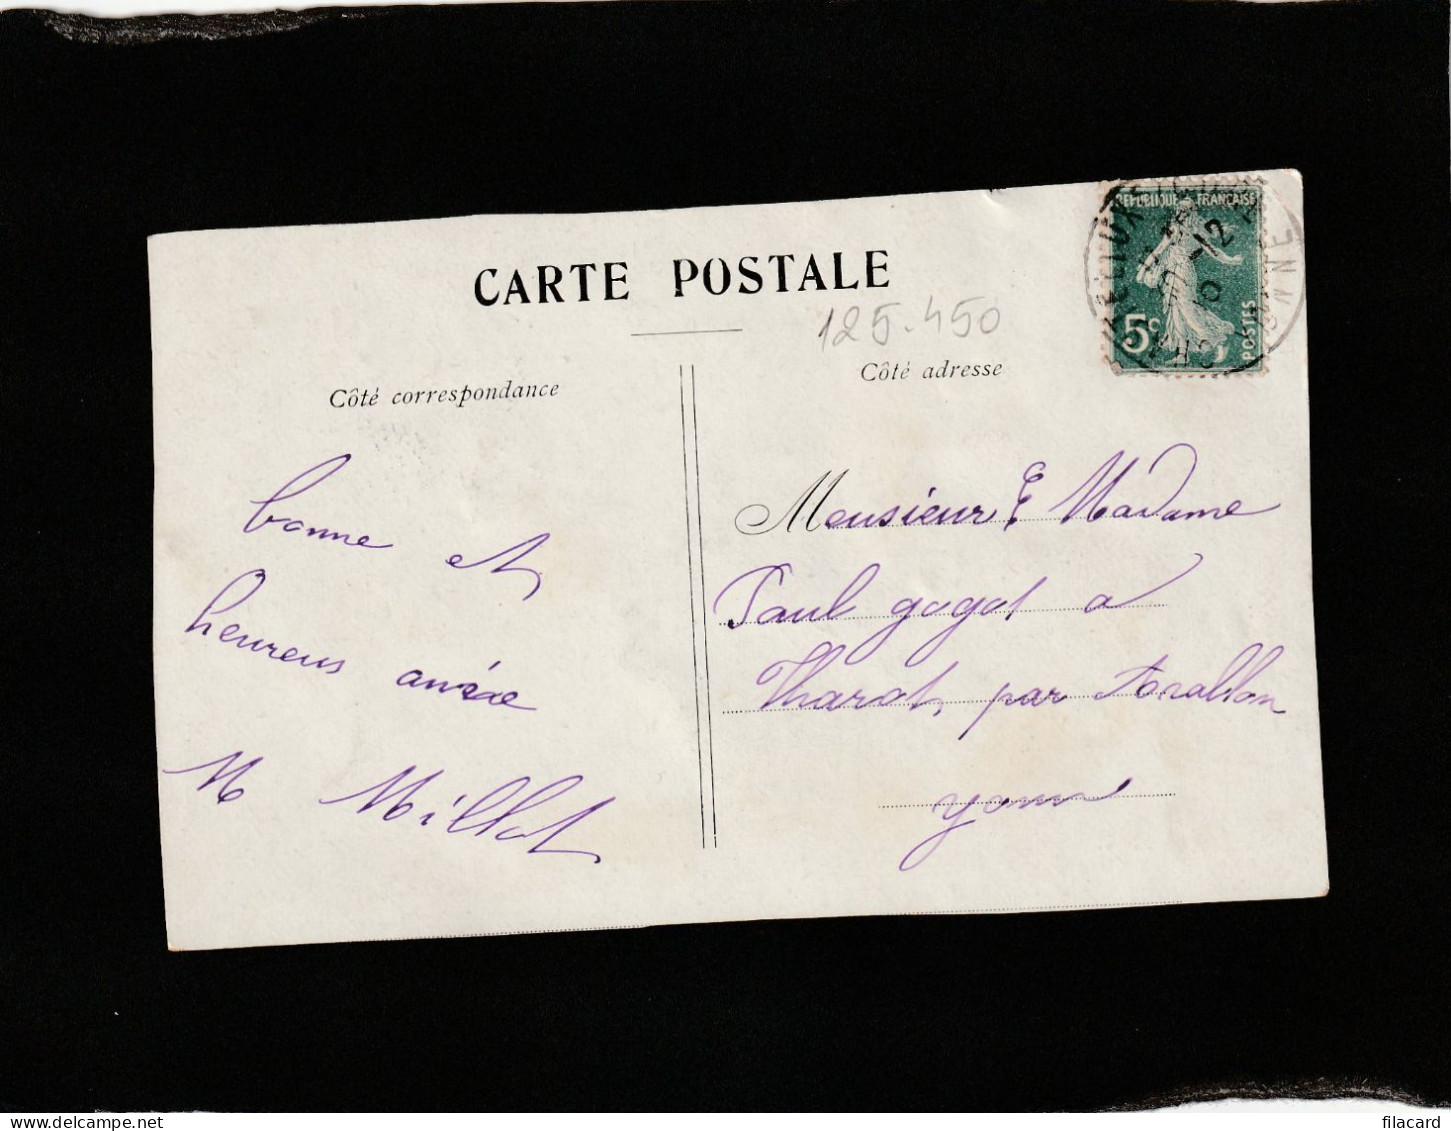 CARTE POSTALE
125.450
Côté correspondance
Côté adresse
REPUBLIQUE FRANÇAISE
5c
POSTES
bonne et
heureus année
M Millot
Monsieur & Madame
Paul gogot a
Tharot, par Avallon
yonne
filacard